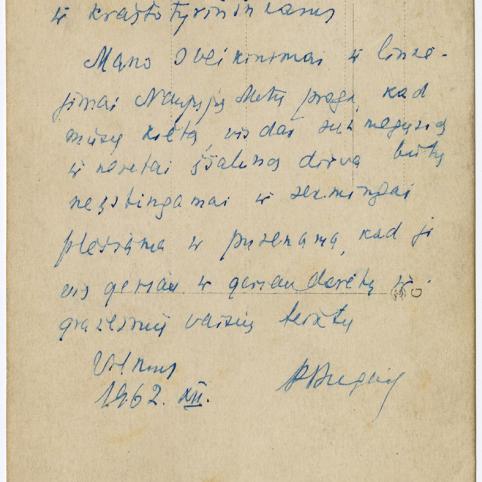 ir kraštotyrininkams
Mano sveikinimai ir linkė-
jimai Naujųjų Metų proga, kad
mūsų kieta, vis dar
ir neretai įšalusi dirva būtų
nesstingamai ir sėkmingai
plėšiama ir purenama, kad ji
vis geriau ir geriau derėtų ir
gražesnių vaisių teiktų
Vilnius
1962. XII.